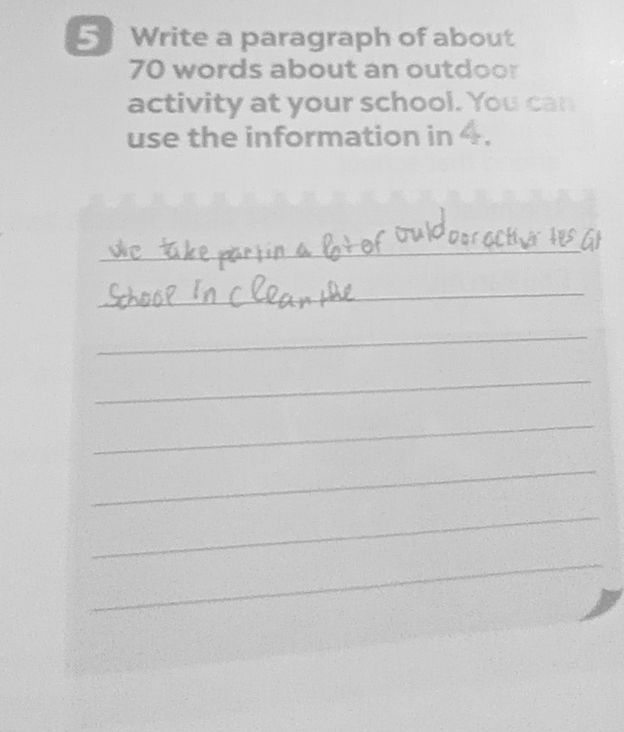 5 Write a paragraph of about
70 words about an outdoor
activity at your school. You can
use the information in 4.
We take part in a lot of ouldoor activities at
School in clean the